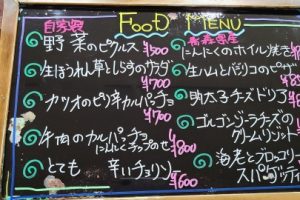 FOOD MENU
自家製
野菜のピクルス
¥500
生ほうれん草としらすのサラダ
¥700
カツオのピリ辛カルパッチョ
¥700
牛肉のカルパッチョ
にんにくチップのせ
¥800
とても辛いチョリソ
¥600
青森県産
にんにくのホイル焼き
生ハムとバジリコのピザ
明太子チーズドリア
ゴルゴンゾーラチーズの
クリームリゾット
海老とブロッコリー
スパゲッティ